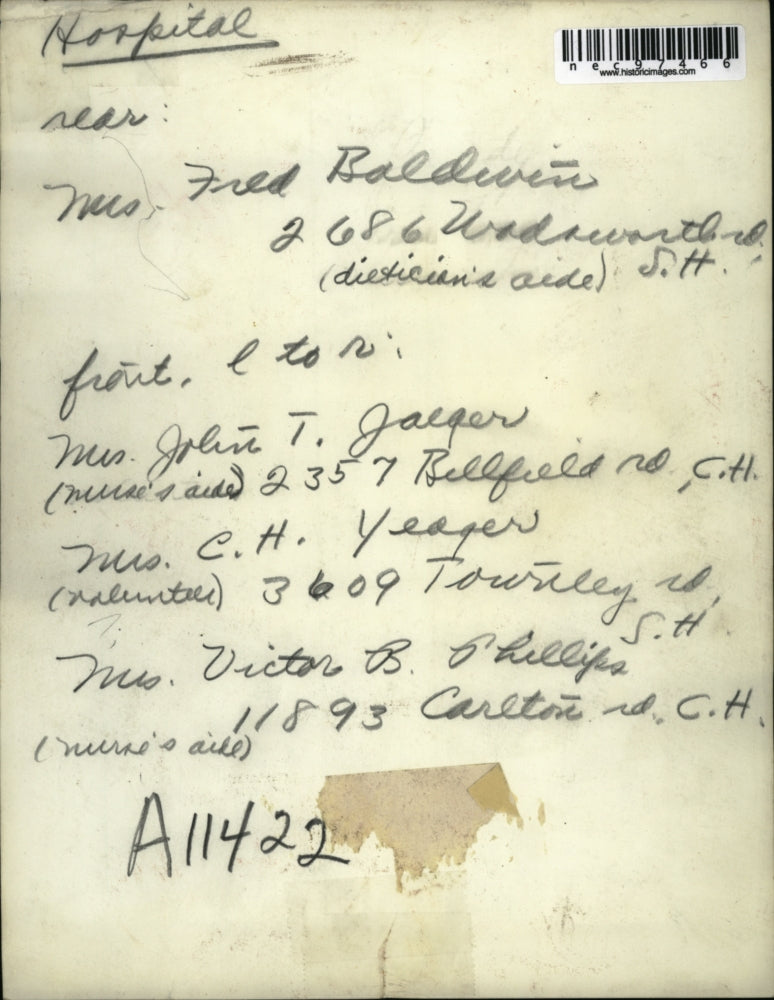 Hospital
nec97466
www.historicimages.com
rear:
Mrs. Fred Baldwin
2686 Wadsworth rd.
(dietician's aide) S.H.
front, l to r:
Mrs. John T. Jaeger
(nurse's aide) 2357 Bellfield rd, C.H.
Mrs. C.H. Yeager
(volunteer) 3609 Townley rd,
S.H.
Mrs. Victor B. Phillips
11893 Carlton rd. C.H.
(nurse's aide)
A11422